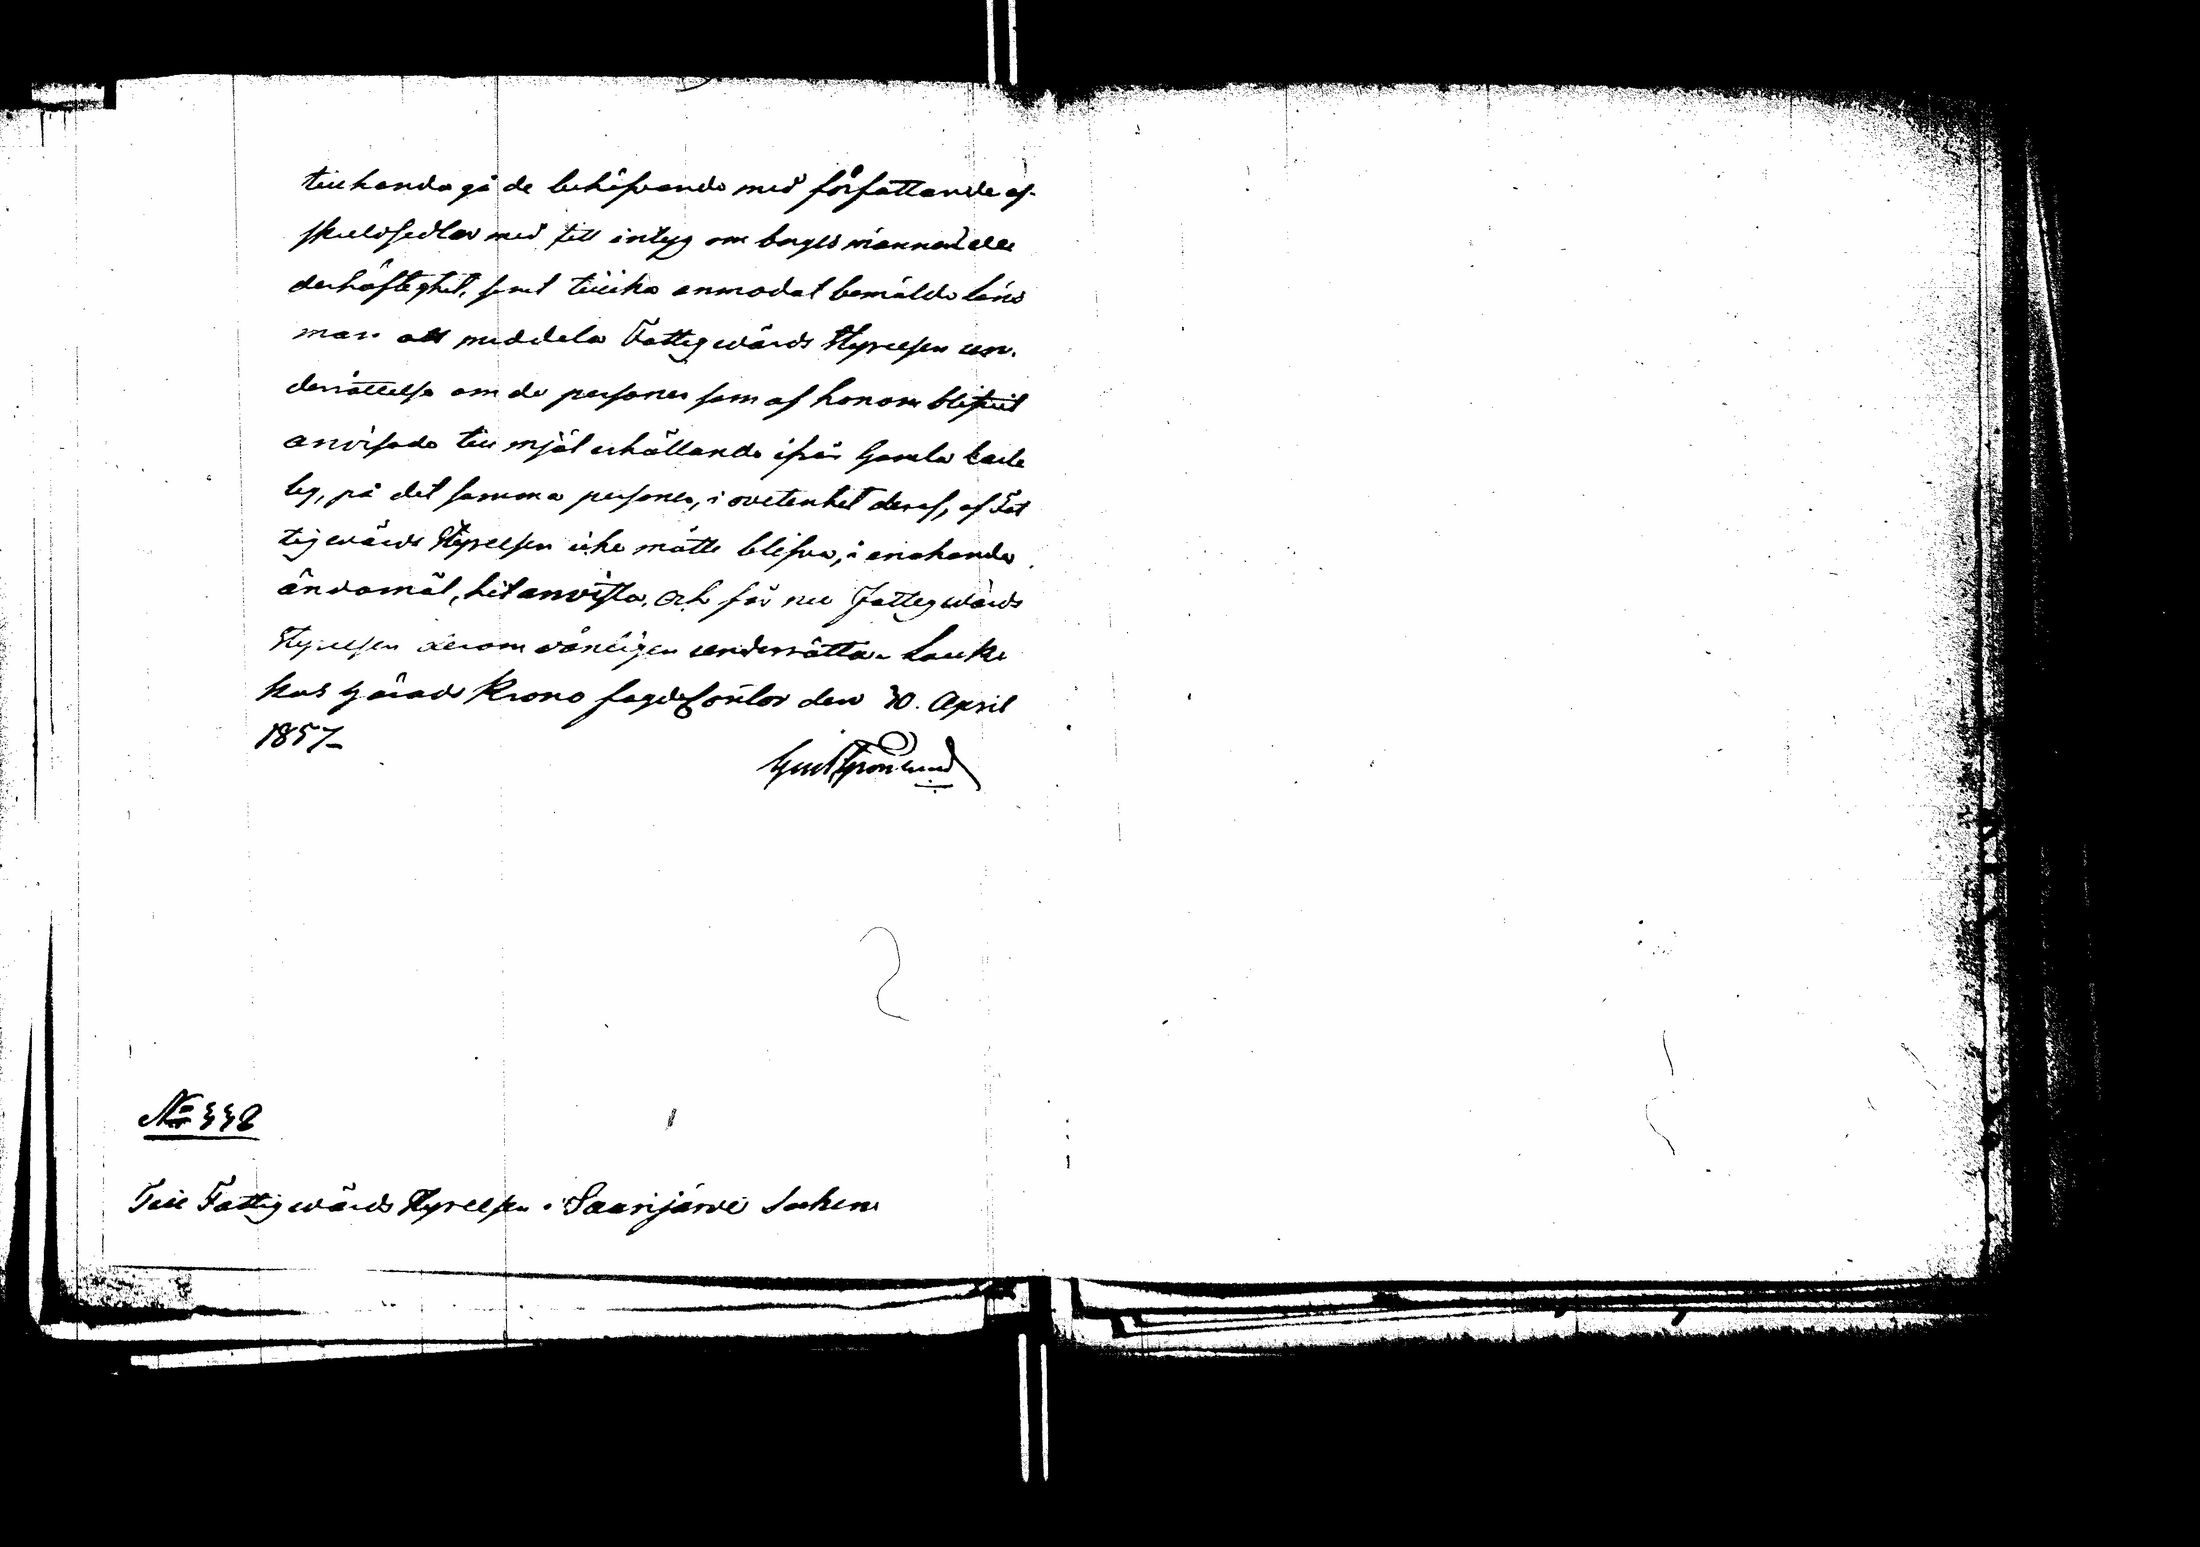 tillhanda gå de behöfvande med författande af
skuldsedlar med fitt intyg om borgesmännens
derhäftighet, samt tillika anmodat bemälde läns
man att meddela Fattigwårds Styrelsen un-
derrättelse om de personer som af honom blifvit
anvisade till mjöl erhållande ifrån Gamla karle
by, på det samma personer, i ovetenhet deraf, af Fat
tigwårds Styrelsen icke måtte blifva, i enahanda
ändamål, hit anvista, och får nu Fattigwårds
Styrelsen derom vänligen underrätta. Lauka
kas härads Krono fogdekontor den 30. April
1857_
Gust Grönlund
No 338
Till Fattigwårds Styrelsen i Saarijärvi Socken